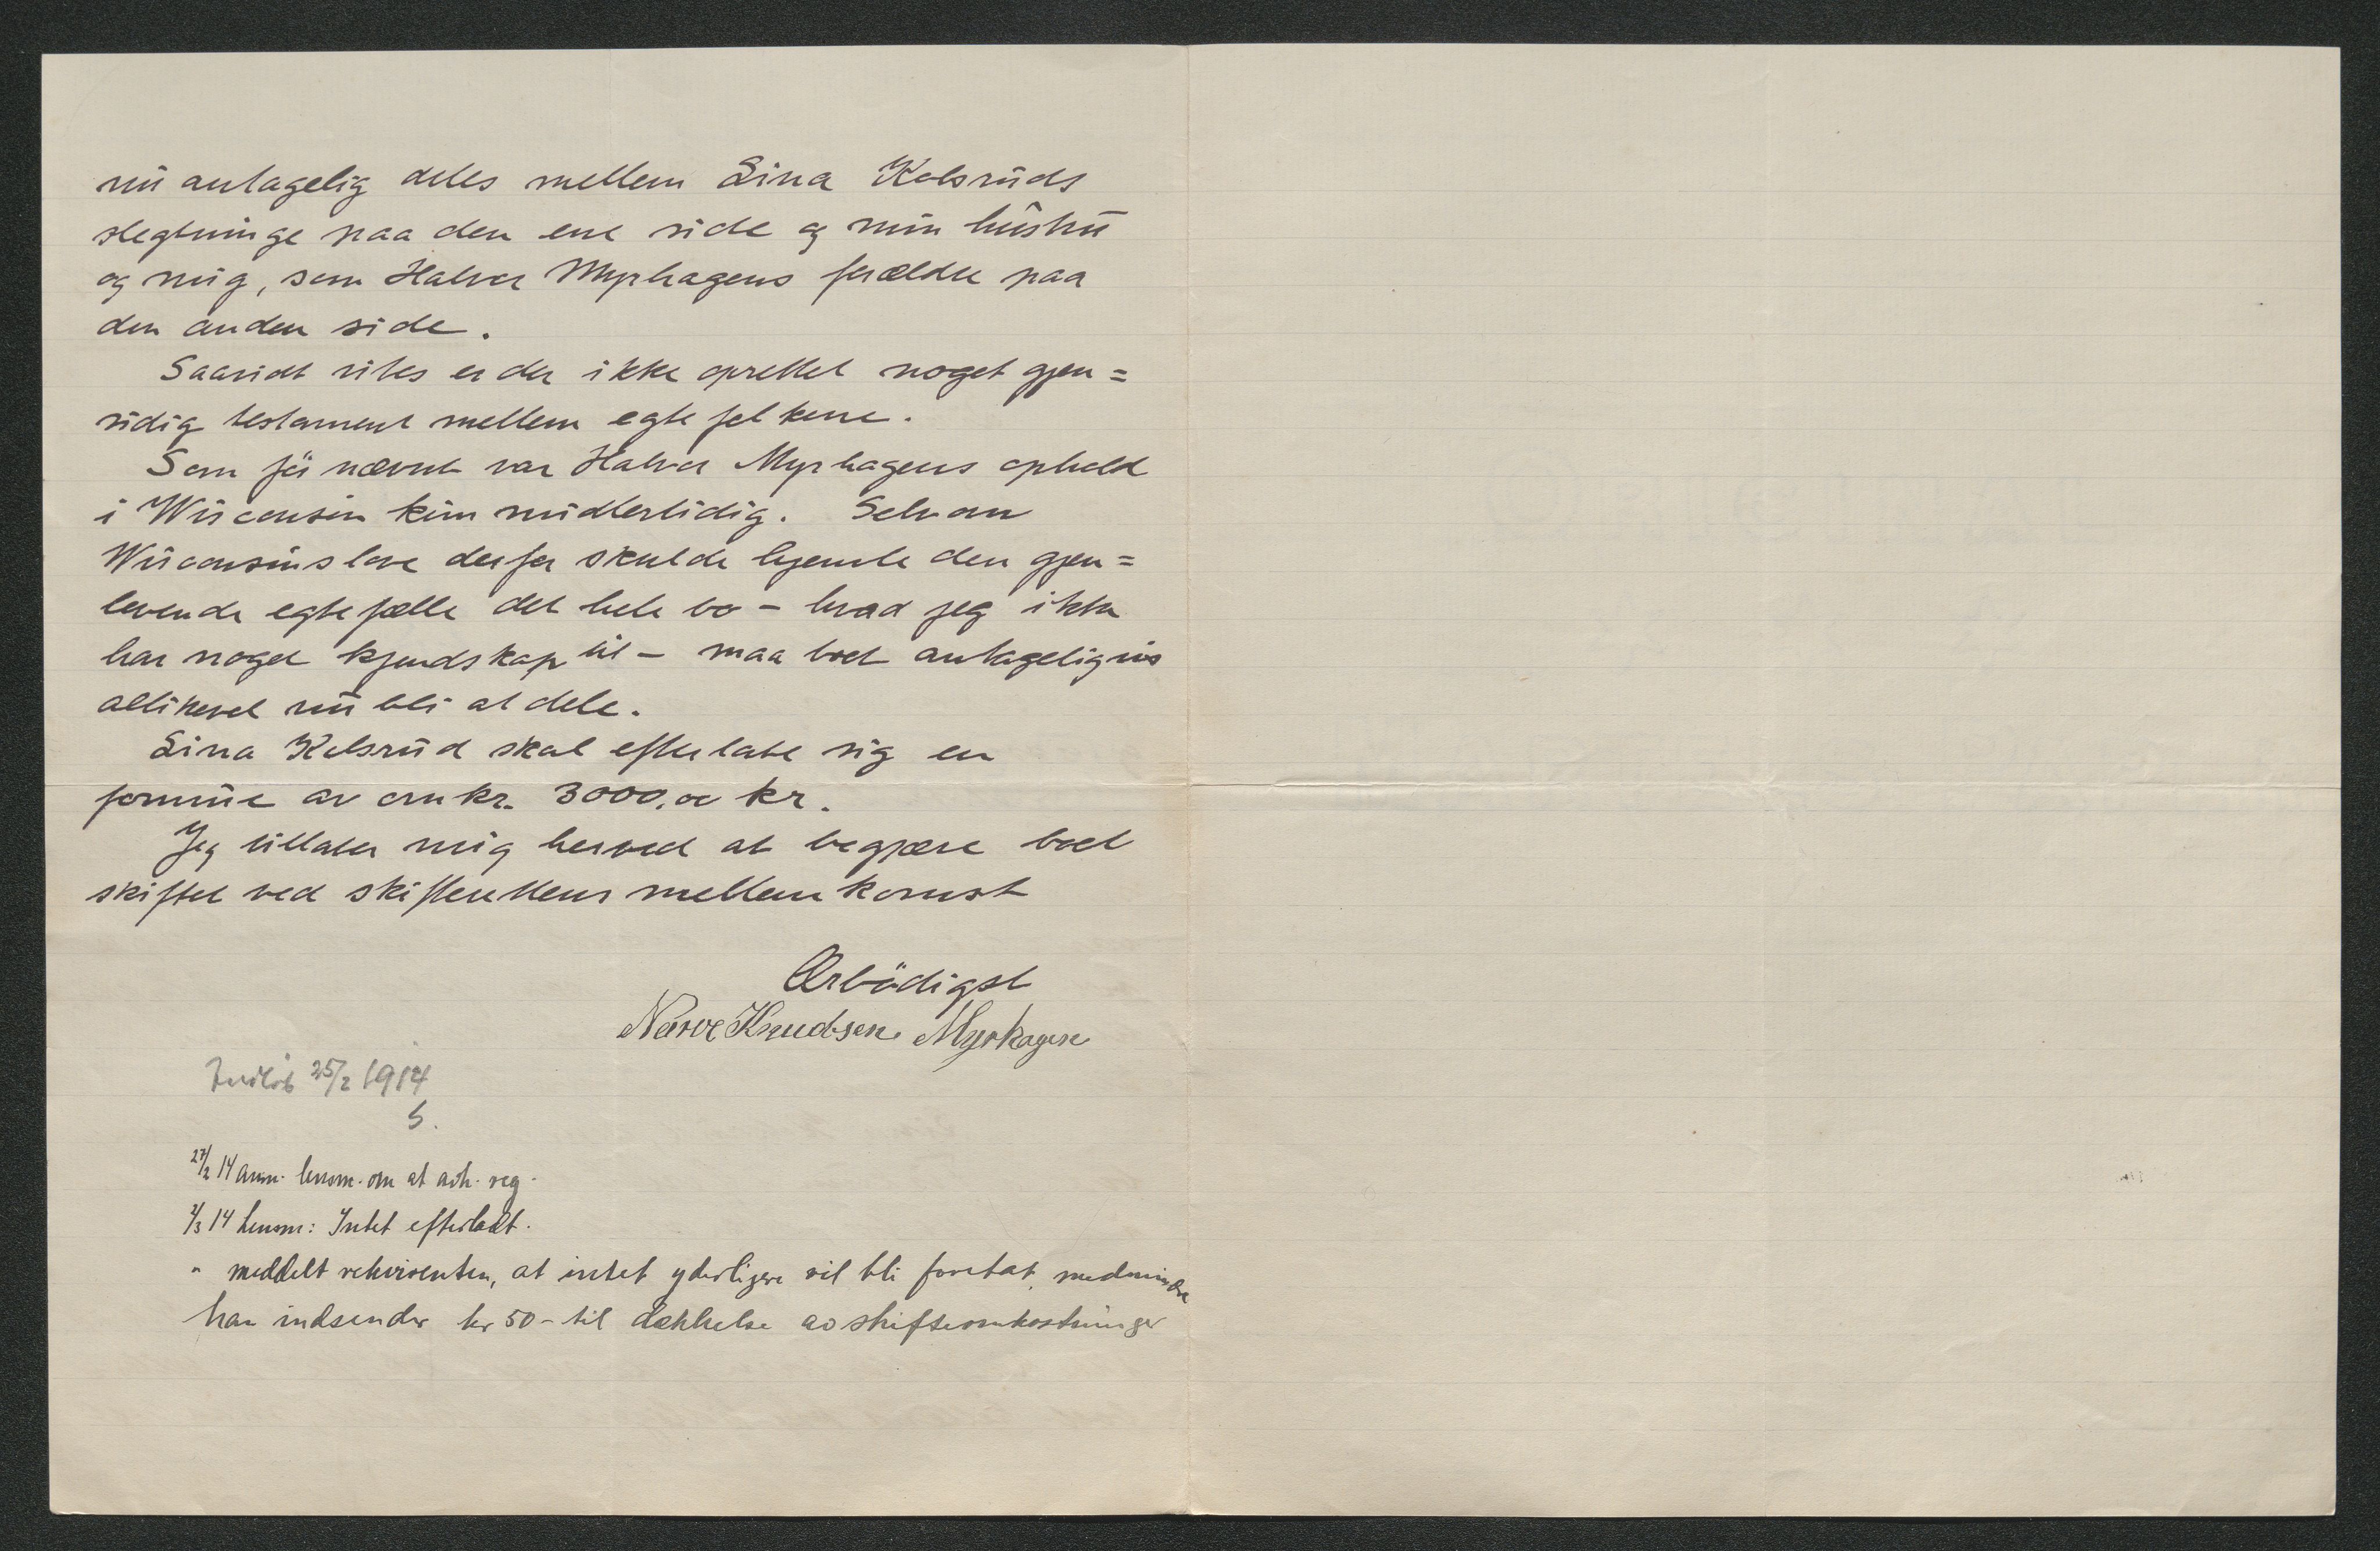 nu antagelig deles mellem Lina Kolsruds
slegtninge paa den ene side og min hustru
og mig, som Halvor Myrhagens forældre paa
den anden side.
Saavidt vites er der ikke oprettet noget gjen=
sidig testament mellem egtefolkene.
Som før nævnt var Halvor Myrhagens ophold
i Wisconsin kun midlertidig. Selv om
Wisconsins love derfor skulde hjemle den gjen=
levende egtefælle det hele bo – hvad jeg ikke
har noget kjendskap til – maa boet antageligvis
allikevel nu bli at dele.
Lina Kolsrud skal efterlate sig en
formue av omkr. 3000,00 kr.
Jeg tillater mig herved at begjære boet
skiftet ved skifterettens mellemkomst
Ærbödigst
Narve Knudsen Myrhagen
Indlöb 25/2 1914
S.
27/2 14 anm. lensm. om at avh. reg.
4/3 14 lensm: Intet efterladt.
" meddelt rekvirenten, at intet yderligere vil bli foretat, medmindre
han indsender kr 50 – til dækkelse av skifteomkostninger